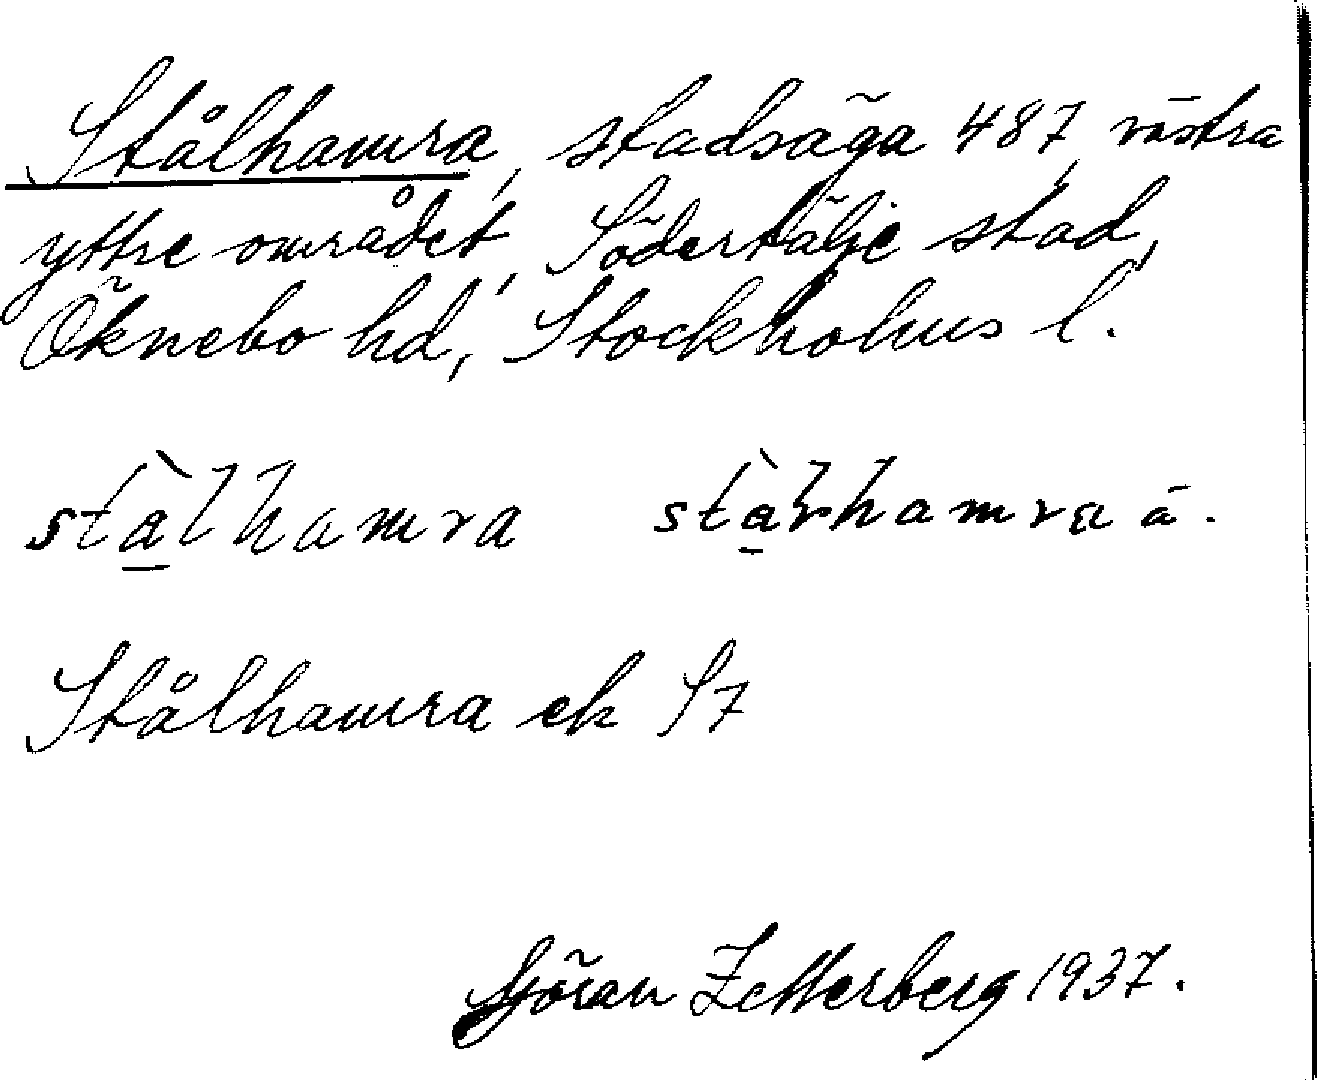 Stålhamra, stadsäga 487, västra
yttre området, Södertälje stad,
Öknebo hd, Stockholms l.
stàlhamra stàrhamra ä.
Stålhamra ek S7
Göran Zetterberg 1937.